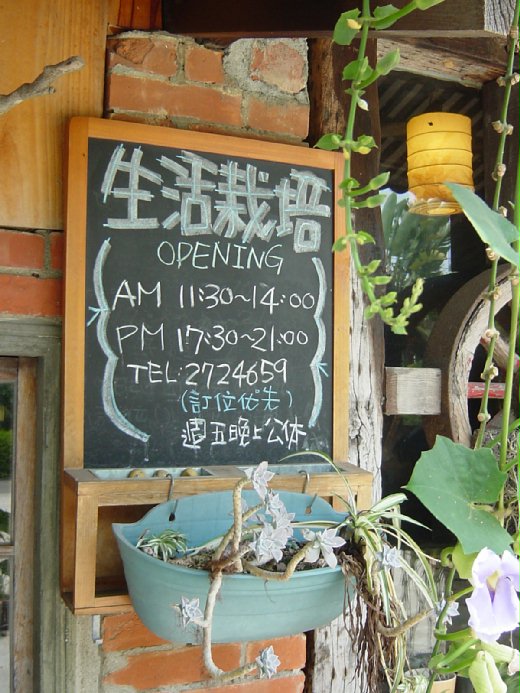 生活栽培
OPENING
AM 11:30~14:00
PM 17:30~21:00
TEL:2724659
(訂位优先)
週五晚上公休